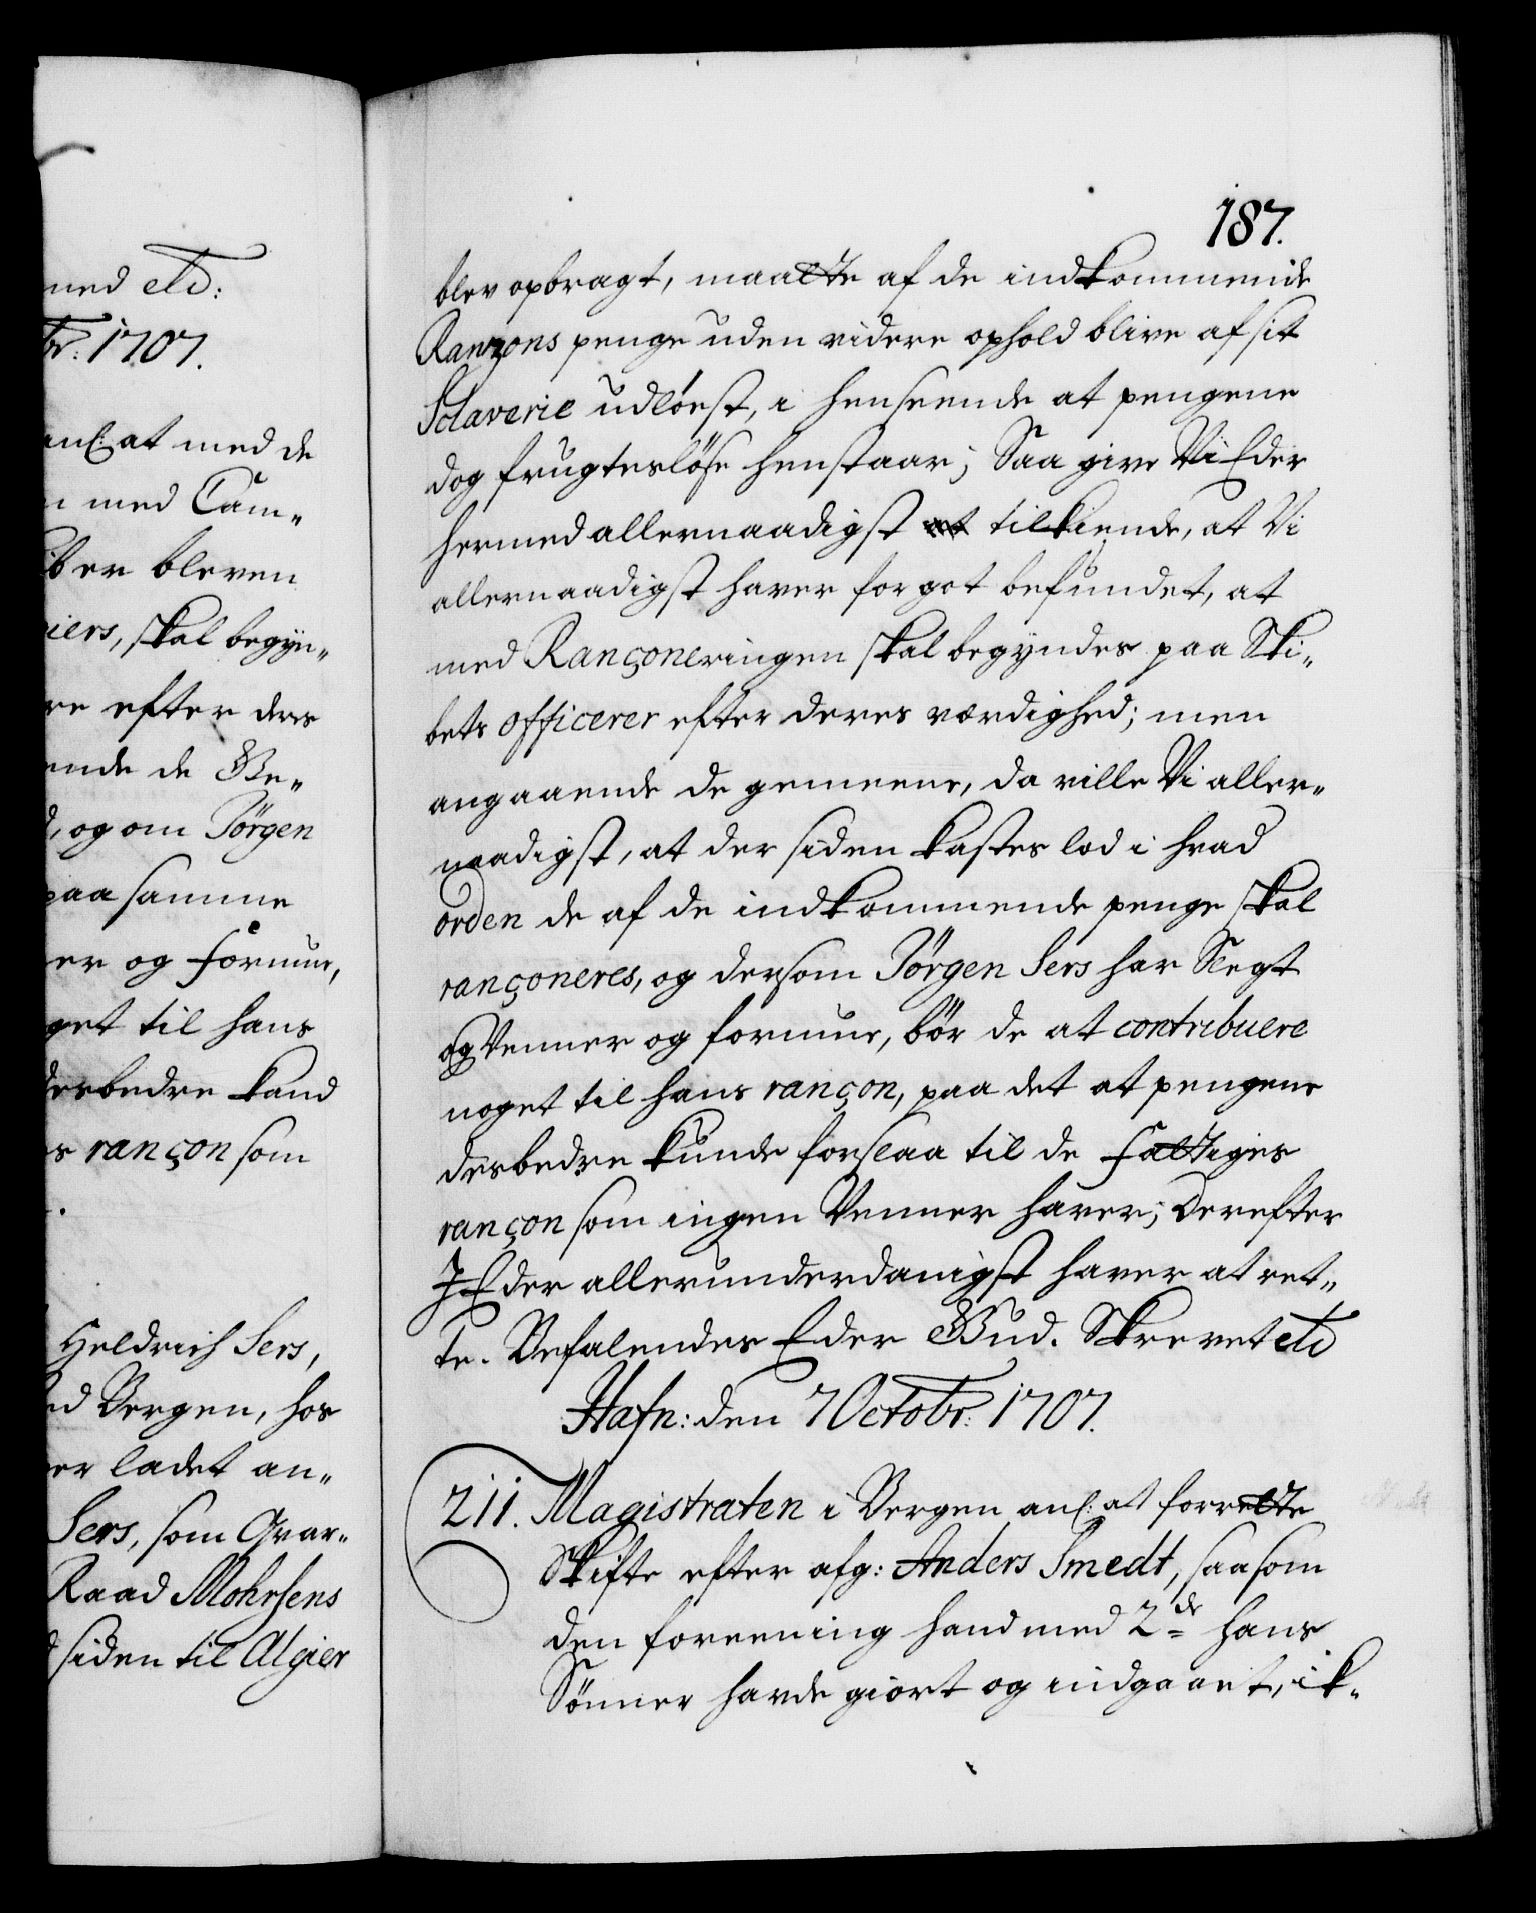 med etc:
br: 1707.
anl: at med de
n med Cam-
ib er bleven
iers, skal begyn-
re efter deres
ende de Be-
d, og om Jörgen
paa samme
er og formue,
get til hans
desbedre kand
s rançon som
Heldrich Sers,
ed Bergen, hos
er ladet an-
Sers, som Qvar-
Raad Mohrsens
d siden til Algier
187.
blev opbragt, maatte af de indkommende
Ranzons penge uden videre ophold blive af sit
Sclaverie udlöest, i henseende at pengene
dog frugteslöse henstaar; Saa give Vi Eder
hermed allernaadigst at tilkiende, at Vi
allernaadigst haver for got befundet, at
med Rançoneringen skal begyndes paa Ski-
bets officerer efter deres værdighed; men
angaaende de gemeene, da ville Vi aller-
naadigst, at der siden kastes lod i hvad
orden de af de indkommende penge skal
rançoneres, og dersom Jörgen Sers har Slegt
og Venner og formue, bör de at contribuere
noget til hans rançon, paa det at pengene
desbedre kunde forslaa til de fattiges
rançon som ingen Venner haver; Derefter
I Eder allerunderdanigst haver at ret-
te. Befalendes Eder Gud. Skrevet etc
Hafn: den 7 Octobr: 1707.
211. Magistraten i Bergen anl: at forrette
Skifte efter afg: Anders Smedt, saasom
den foreening hand med 2de hans
Sönner havde giort og indgaaet, ik-